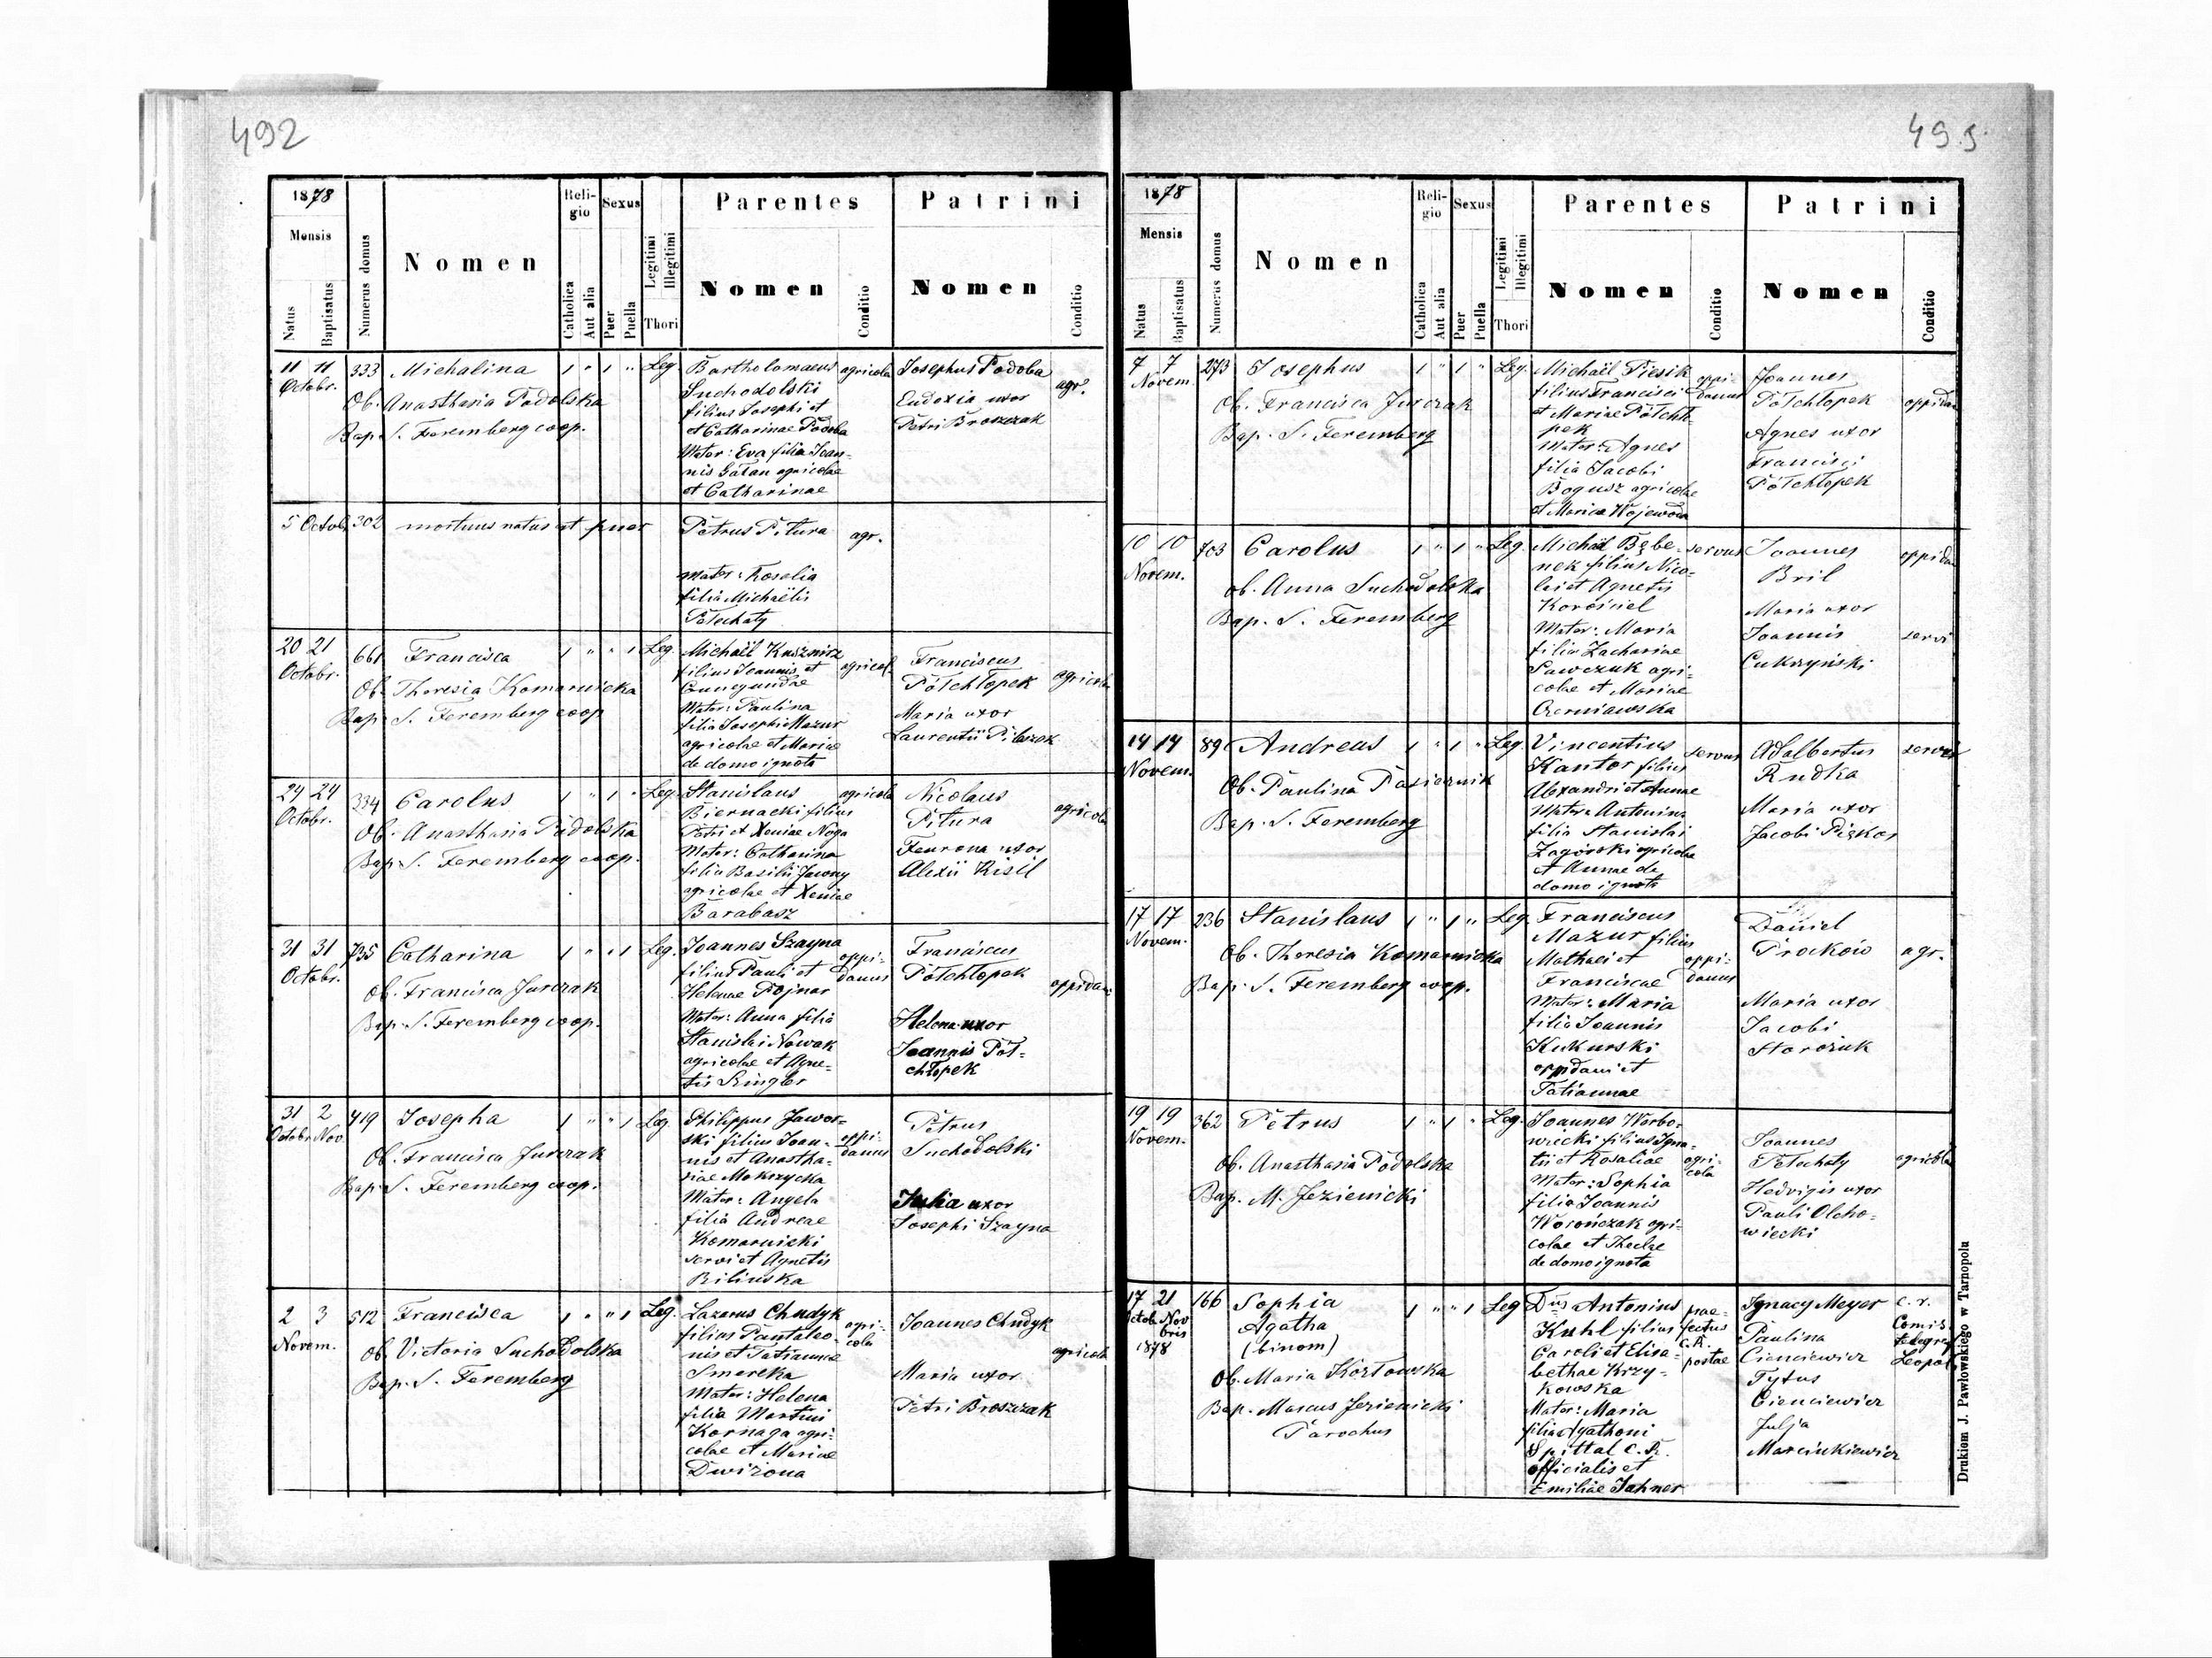 492
1878
Mensis
Natus
Baptisatus
Numerus domus
Nomen
Religio
Catholica
Aut alia
Sexus
Puer
Puella
Legitimi
Illegitimi
Thori
Parentes
Nomen
Conditio
Patrini
Nomen
Conditio
11 11
Octobr.
333
Michalina
1 " 1 "
Leg
Ob. Anasthasia Podolska
Bap. S. Feremberg coop.
Bartholomaeus
Suchodolski
filius Josephi et
et Catharinae Podoba
Mater: Eva filia Joan-
nis Gatan agricolae
et Catharinae
agricola
Josephus Podoba
Eudoxia uxor
Petri Broszczak
agr.
5 Octob.
302
mortuus natus est puer
Petrus Pitura
agr.
Mater: Rosalia
filia Michaëlis
Potechaty
20 21
Octobr.
661
Francisca
1 " " 1
Leg.
Ob. Theresia Komarnicka
Bap. S. Feremberg coop
Michaël Kusznirz
filius Joannis et
Cunegundae
Mater: Paulina
filia Josephi Mazur
agricolae et Mariae
de domo ignota
agricol.
Franciscus
Półchłopek
Maria uxor
Laurentii Pilaszek
agricola
24 24
Octobr.
334
Carolus
1 " 1 "
Leg.
Ob. Anasthasia Podolska
Bap. S. Feremberg coop.
Stanislaus
Biernacki filius
Petri et Xeniae Noga
Mater: Catharina
filia Basilii Jawny
agricolae et Xeniae
Barabasz
agricola
Nicolaus
Pitura
Feurona uxor
Alexii Kisil
agricola
31 31
Octobr.
735
Catharina
1 " " 1
Leg.
Ob. Francisca Jurczak
Bap. S. Feremberg coop.
Joannes Szayna
filius Pauli et
Helenae Pojnar
Mater: Anna filia
Stanislai Nowak
agricolae et Agne-
tis Szingler
oppi-
danus
Franciscus
Półchłopek
Helena uxor
Joannis Pół-
chłopek
oppidan.
31 2
Octobr Nov.
419
Josepha
1 " " 1
Leg
Ob. Francisca Jurczak
Bap. S. Feremberg coop.
Philippus Jawor-
ski filius Joan-
nis et Anastha-
siae Mokrzycka
Mater: Angela
filia Andreae
Komarnicki
servi et Agnetis
Bilinska
oppi-
danus
Petrus
Suchodolski
Julia uxor
Josephi Szayna
2 3
Novem.
512
Francisca
1 " " 1
Leg.
Ob. Victoria Suchodolska
Bap. S. Feremberg
Lazarus Chudyk
filius Pantaleo-
nis et Tatiannae
Smereka
Mater: Helena
filia Martini
Kornaga agri-
colae et Mariae
Dwizona
agri-
cola
Joannes Chudyk
Maria uxor
Petri Broszczak
agricola
493
1878
Mensis
Natus
Baptisatus
Numerus domus
Nomen
Religio
Catholica
Aut alia
Sexus
Puer
Puella
Legitimi
Illegitimi
Thori
Parentes
Nomen
Conditio
Patrini
Nomen
Conditio
7 7
Novem.
273
Josephus
1 " 1 "
Leg.
Ob. Francisca Jurczak
Bap. S. Feremberg
Michaël Piesik
filius Francisci
et Mariae Półchło-
pek
Mater: Agnes
filia Jacobi
Bogusz agricolae
et Mariae Wojewoda
oppi-
danus
Joannes
Półchłopek
Agnes uxor
Francisci
Półchłopek
oppidan
10 10
Novem.
703
Carolus
1 " 1 "
Leg.
ob. Anna Suchodolska
Bap. S. Feremberg
Michaël Bębe-
nek filius Nico-
lai et Agnetis
Korościel
Mater: Maria
filia Zachariae
Sawczuk agri-
colae et Mariae
Czerniawska
servus
Joannes
Bril
Maria uxor
Joannis
Cukrzyński
oppidan
servi
14 14
Novem.
89
Andreas
1 " 1 "
Leg.
Ob. Paulina Pasiecznik
Bap. S. Feremberg
Vincentius
Kantor filius
Alexandri et Annae
Mater: Antonina
filia Stanislai
Zagórski agricolae
et Annae de
domo ignota
servus
Adalbertus
Rudka
Maria uxor
Jacobi Piękos
servus
17 17
Novem.
236
Stanislaus
1 " 1 "
Leg
Ob. Theresia Komarnicka
Bap. S. Feremberg coop.
Franciscus
Mazur filius
Mathaei et
Franciscae
Mater: Maria
filia Joannis
Kukurski
oppidani et
Tatiannae
oppi-
danus
Daniel
Prokow
Maria uxor
Jacobi
Starczuk
agr.
19 19
Novem.
362
Petrus
1 " 1 "
Leg.
Ob. Anasthasia Podolska
Bap. M. Jezienicki
Joannes Worbo-
wiecki filius Igna-
tii et Rosaliae
Mater: Sophia
filia Joannis
Worończak agri-
colae et Theclae
de domo ignota
agri-
cola
Joannes
Potechaty
Hedvigis uxor
Pauli Olcho-
wiecki
agricola
17 21
Octob. Nov
bris
1878
166
Sophia
Agatha
(binom)
1 " " 1
Leg
Ob. Maria Kozłowska
Bap. Marcus Jezienicki
Parochus
Dus Antonius
Kuhl filius
Caroli et Elisa-
bethae Krzy-
kowska
Mater: Maria
filia Agathoni
Spittal C. R.
officialis et
Emiliae Jahner
prae-
fectus
C. R.
postae
Ignacy Meyer
Paulina
Cienciewicz
Tytus
Cienciewicz
Julja
Marcinkiewicz
c. r.
Comis.
telegraf
Leopol
Drukiem J. Pawłowskiego w Tarnopolu